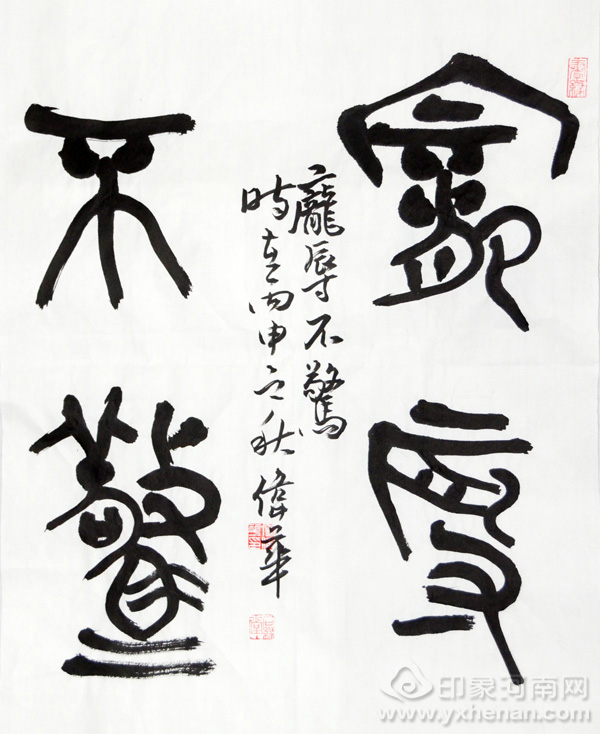 寵辱
不驚
龐辱不驚
時在丙申之秋偉華
印象河南网
www.yxhenan.com